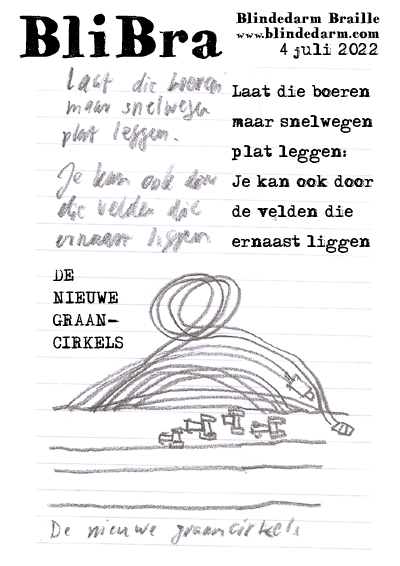 BliBra
Blindedarm Braille
www.blindedarm.com
4 juli 2022
Laat die boeren
maar snelwegen
plat leggen.
Je kan ook door
die velden die
ernaast liggen
Laat die boeren
maar snelwegen
plat leggen:
Je kan ook door
de velden die
ernaast liggen
DE
NIEUWE
GRAAN-
CIRKELS
De nieuwe graancirkels